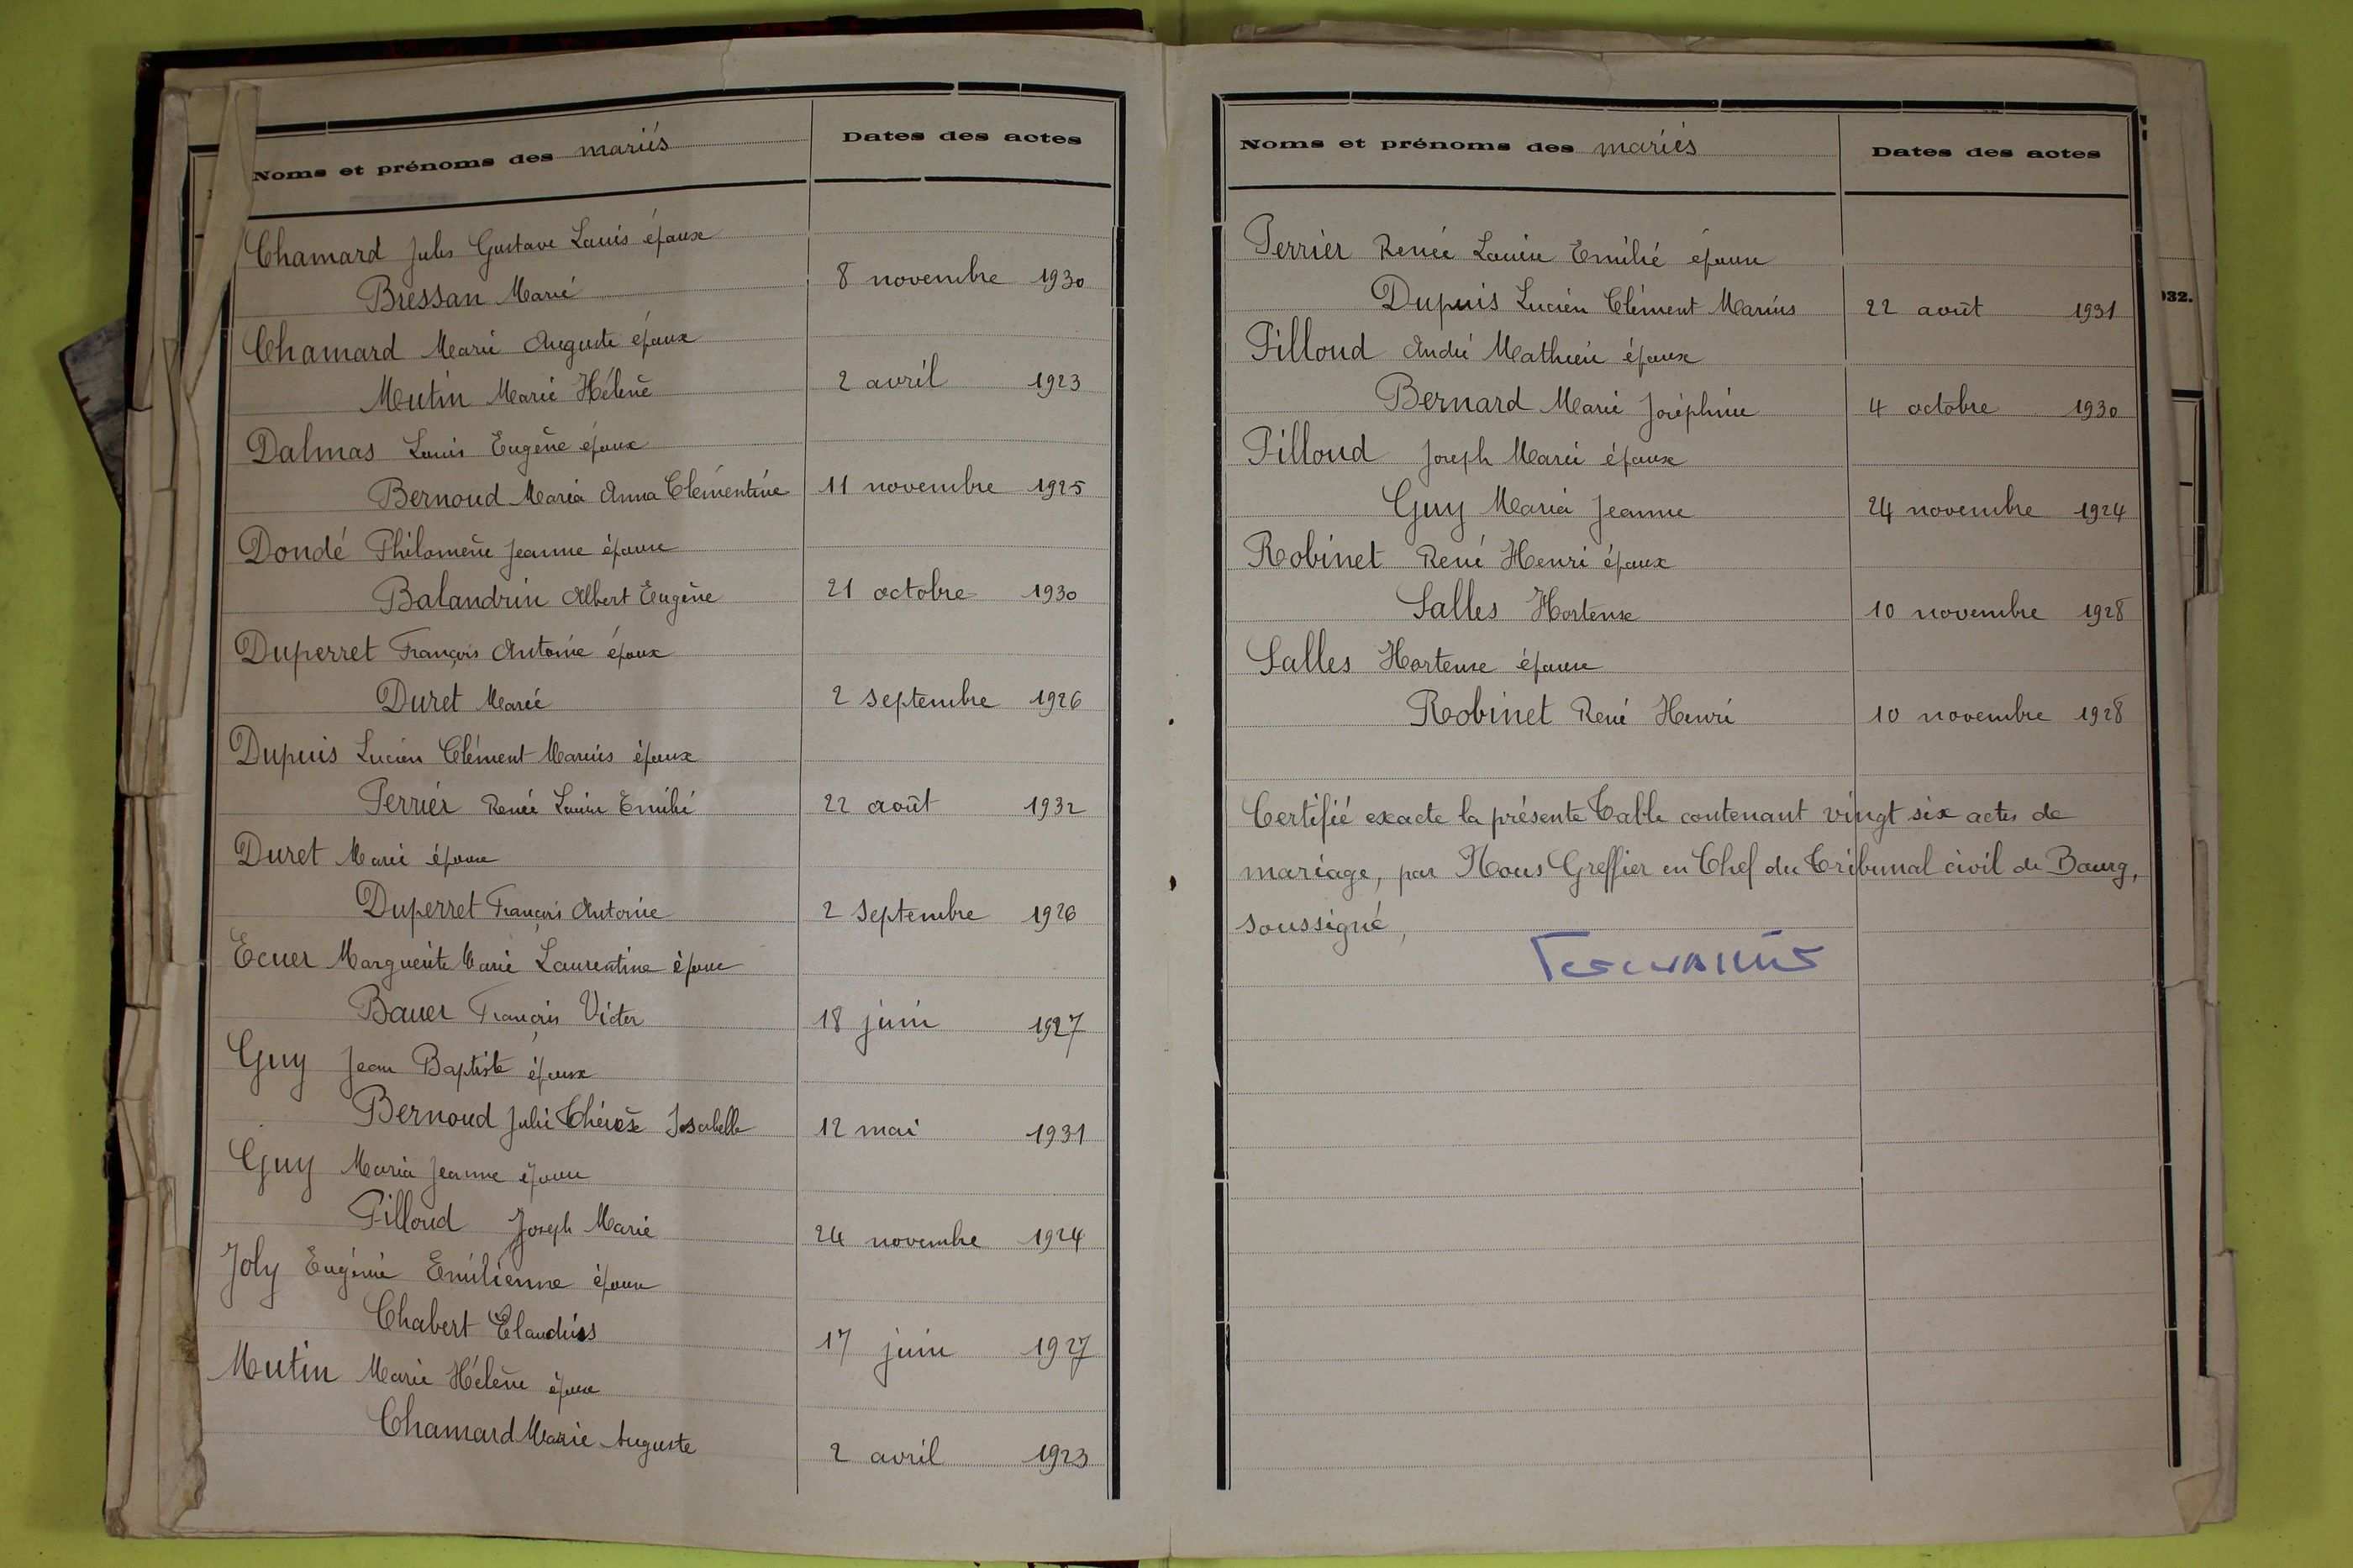 Noms et prénoms des mariés
Dates des actes
Chamard Jules Gustave Louis époux
Bressan Marie 8 novembre 1930
Chamard Marie Auguste époux
Mutin Marie Hélène 2 avril 1923
Dalmas Louis Eugène époux
Bernoud Maria Anna Clémentine 11 novembre 1925
Dondé Philomène Jeanne épouse
Balandrin Albert Eugène 21 octobre 1930
Duperret François Antoine époux
Duret Marie 2 septembre 1926
Dupuis Lucien Clément Marius époux
Perrier Renée Louise Emilie 22 août 1932
Duret Marie épouse
Duperret François Antoine 2 septembre 1926
Ecuer Marguerite Marie Laurentine épouse
Bauer François Victor 18 juin 1927
Guy Jean Baptiste époux
Bernoud Julie Thérèse Isabelle 12 mai 1931
Guy Maria Jeanne épouse
Pilloud Joseph Marie 24 novembre 1924
Joly Eugénie Emilienne épouse
Chabert Claudius 17 juin 1927
Mutin Marie Hélène épouse
Chamard Marie Auguste 2 avril 1923
Noms et prénoms des mariés
Dates des actes
Perrier Renée Louise Emilie épouse
Dupuis Lucien Clément Marius 22 août 1931
Pilloud André Mathieu époux
Bernard Marie Joséphine 4 octobre 1930
Pilloud Joseph Marie époux
Guy Maria Jeanne 24 novembre 1924
Robinet René Henri époux
Salles Hortense 10 novembre 1928
Salles Hortense épouse
Robinet René Henri 10 novembre 1928
Certifié exacte la présente Table contenant vingt six actes de
mariage, par Nous Greffier en Chef du Tribunal civil de Bourg,
soussigné,
932.